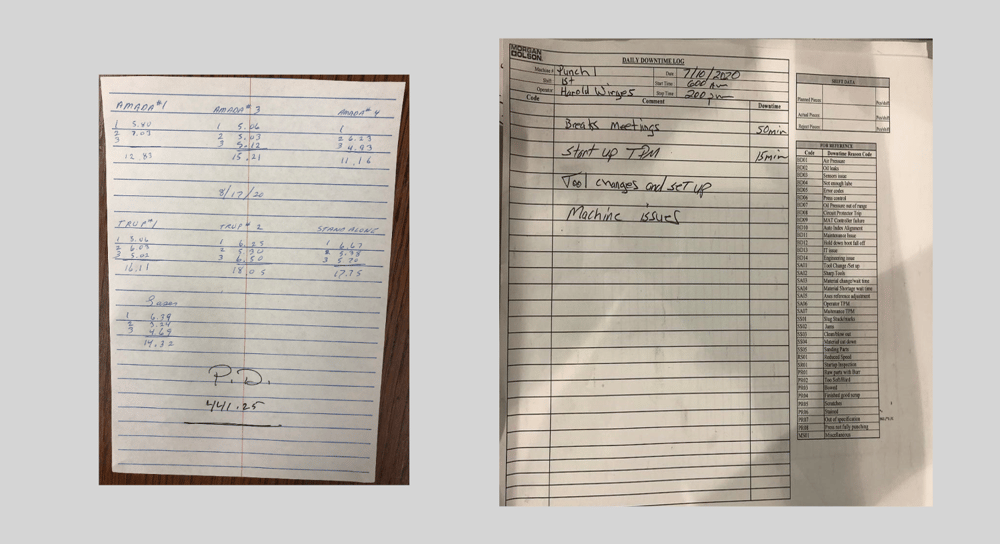 AMADA #1 AMADA #3 AMADA #4
1 5.80 1 5.06 1
2 7.03 2 5.03 2 6.23
3 3 5.12 3 4.93
12.83 15.21 11.16
8/17/20
TRUP #1 TRUP #2 STAND ALONE
1 5.06 1 6.25 1 6.67
2 6.03 2 5.30 2 5.38
3 5.02 3 6.50 3 5.30
16.11 18.05 17.35
1 6.39
2 3.24
3 4.69
14.32
P.D.
441.25
MORGAN OLSON
DAILY DOWNTIME LOG
Machine # Punch 1 Date 7/10/2020
Shift 1st Start Time 600 Am
Operator Harold Wirges Stop Time 200 pm
Code Comment Downtime
Breaks Meetings 50min
Start up TPM 15min
Tool changes and set up
Machine issues
SHIFT DATA
Planned Pieces Pcs/shift
Actual Pieces Pcs/shift
Reject Pieces Pcs/shift
FOR REFERENCE
Code Downtime Reason Code
HD01 Air Pressure
HD02 Oil leaks
HD03 Sensors issue
HD04 Not enough lube
HD05 Error codes
HD06 Press control
HD07 Oil Pressure out of range
HD08 Circuit Protector Trip
HD09 MAT Controller failure
HD10 Auto Index Alignment
HD11 Maintenance Issue
HD12 Hold down boot fall off
HD13 IT issue
HD14 Engineering issue
SA01 Tool Change /Set up
SA02 Sharp Tools
SA03 Material change/wait time
SA04 Material Shortage wait time
SA05 Axes reference adjustment
SA06 Operator TPM
SA07 Maitenance TPM
SS01 Slug Stuck/sucks
SS02 Jams
SS03 Clean/blow out
SS04 Material cut down
SS05 Sanding Parts
RS01 Reduced Speed
SR01 Startup Inspection
PR01 Raw parts with Burr
PR02
PR03 Bowed
PR04 Finished good setup
PR05 Scratches
PR06 Stained
PR07 Out of specification
PR08 Press not fully punching
MS01 Miscellaneous